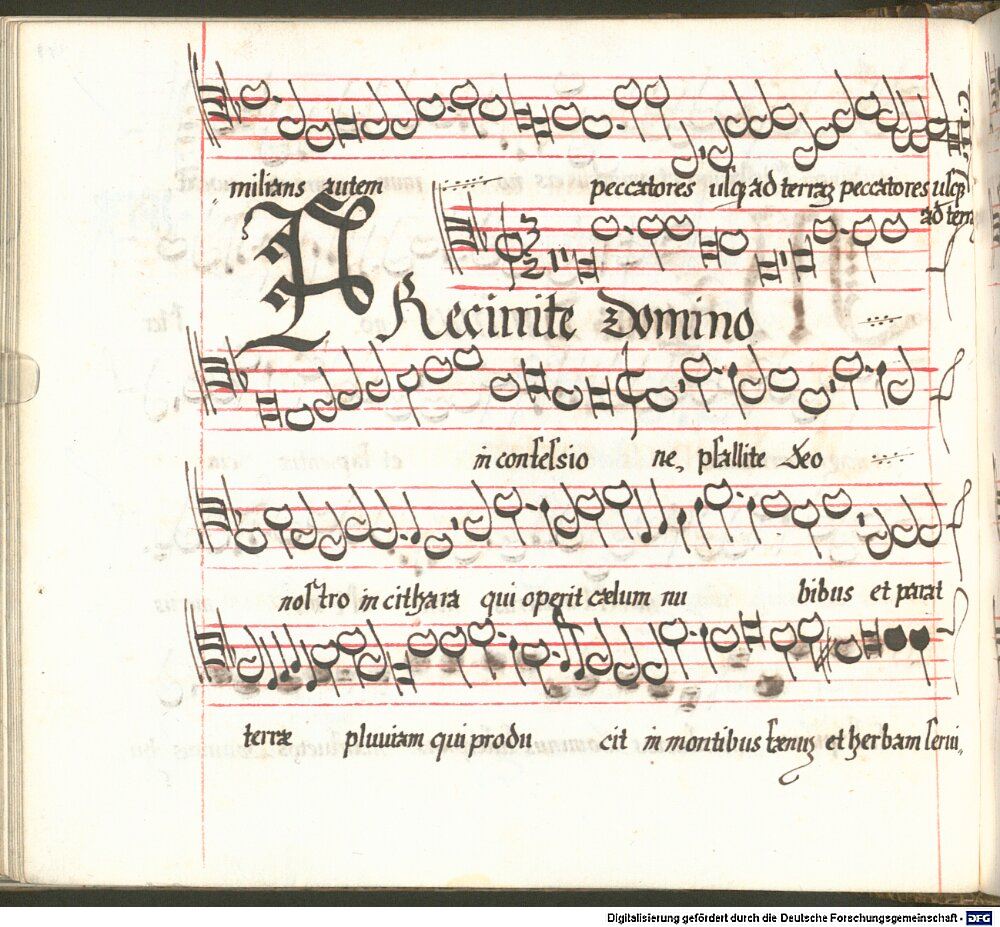 milians autem peccatores usq₃ ad terraz peccatores usq₃
ad terrā
PRecinite Domino
in confessio ne, psallite Deo
nostro in cithara qui operit cælum nu bibus et parat
terræ pluuiam qui produ cit in montibus fænuz et herbam serui,,
Digitalisierung gefördert durch die Deutsche Forschungsgemeinschaft - DFG